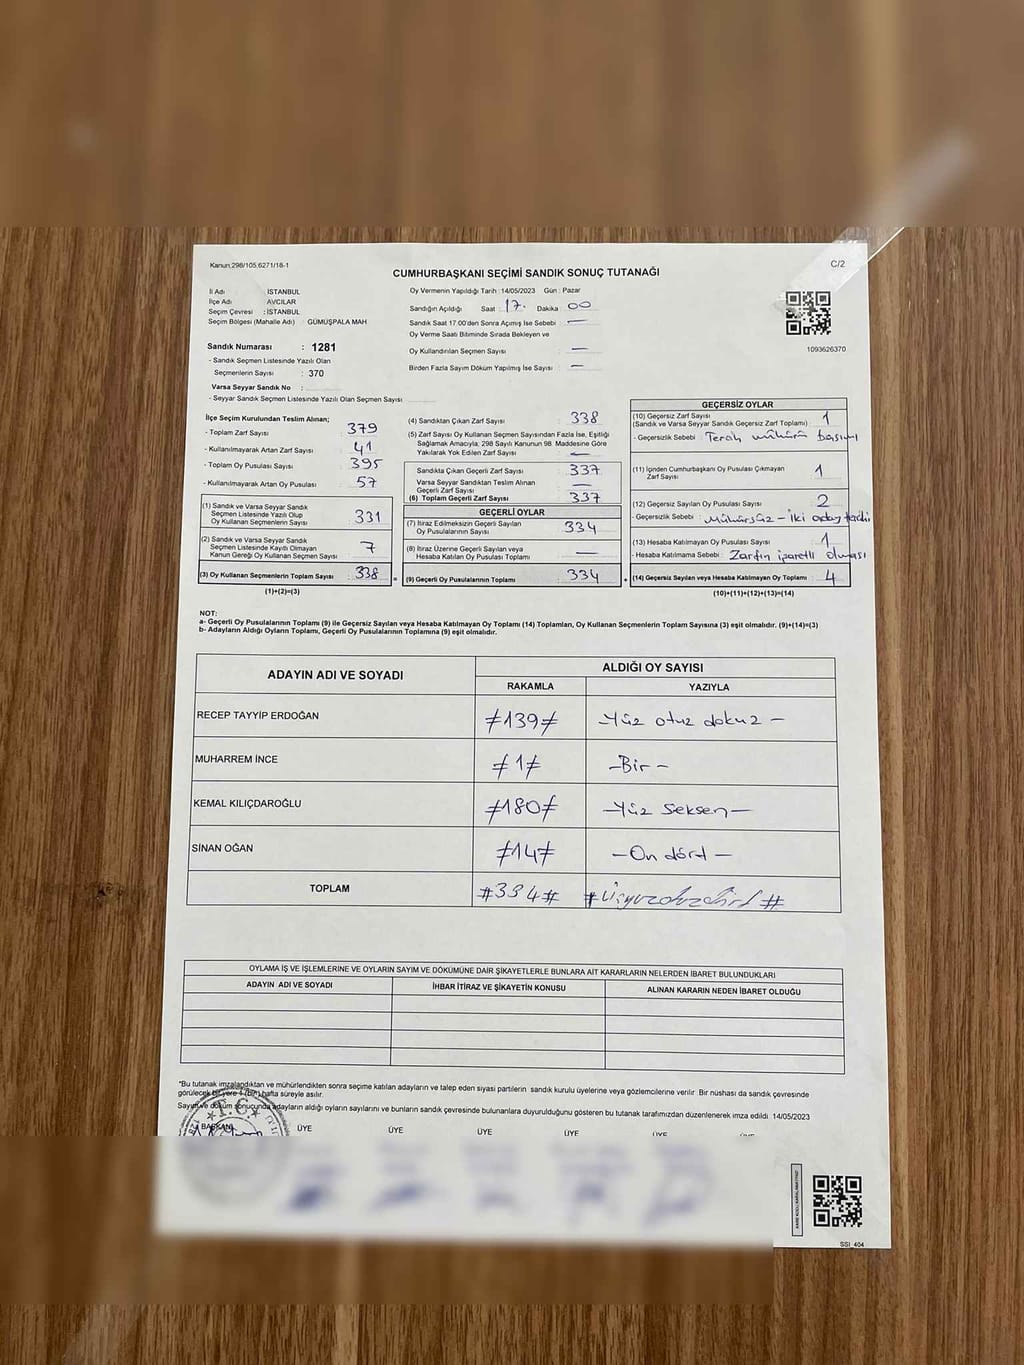 Kanun;298/105,6271/18-1
C/2
CUMHURBAŞKANI SEÇİMİ SANDIK SONUÇ TUTANAĞI
İl Adı : İSTANBUL
İlçe Adı : AVCILAR
Seçim Çevresi : İSTANBUL
Seçim Bölgesi (Mahalle Adı) : GÜMÜŞPALA MAH
Oy Vermenin Yapıldığı Tarih :14/05/2023 Gün : Pazar
Sandığın Açıldığı Saat 17. Dakika 00
Sandık Saat 17.00'den Sonra Açımış İse Sebebi —
Oy Verme Saati Bitiminde Sırada Bekleyen ve
Oy Kullandırılan Seçmen Sayısı —
Birden Fazla Sayım Döküm Yapılmış İse Sayısı —
1093626370
Sandık Numarası : 1281
- Sandık Seçmen Listesinde Yazılı Olan
Seçmenlerin Sayısı : 370
Varsa Seyyar Sandık No :
- Seyyar Sandık Seçmen Listesinde Yazılı Olan Seçmen Sayısı
İlçe Seçim Kurulundan Teslim Alınan;
- Toplam Zarf Sayısı 379
- Kullanılmayarak Artan Zarf Sayısı 41
- Toplam Oy Pusulası Sayısı 395
- Kullanılmayarak Artan Oy Pusulası 57
(1) Sandık ve Varsa Seyyar Sandık
Seçmen Listesinde Yazılı Olup
Oy Kullanan Seçmenlerin Sayısı 331
(2) Sandık ve Varsa Seyyar Sandık
Seçmen Listesinde Kayıtlı Olmayan
Kanun Gereği Oy Kullanan Seçmen Sayısı 7
(3) Oy Kullanan Seçmenlerin Toplam Sayısı 338
(1)+(2)=(3)
(4) Sandıktan Çıkan Zarf Sayısı 338
(5) Zarf Sayısı Oy Kullanan Seçmen Sayısından Fazla İse, Eşitliği
Sağlamak Amacıyla; 298 Sayılı Kanunun 98. Maddesine Göre
Yakılarak Yok Edilen Zarf Sayısı —
Sandıkta Çıkan Geçerli Zarf Sayısı 337
Varsa Seyyar Sandıktan Teslim Alınan
Geçerli Zarf Sayısı —
(6) Toplam Geçerli Zarf Sayısı 337
GEÇERLİ OYLAR
(7) İtiraz Edilmeksizin Geçerli Sayılan
Oy Pusulalarının Sayısı 334
(8) İtiraz Üzerine Geçerli Sayılan veya
Hesaba Katılan Oy Pusulası Toplamı —
(9) Geçerli Oy Pusulalarının Toplamı 334
GEÇERSİZ OYLAR
(10) Geçersiz Zarf Sayısı 1
(Sandık ve Varsa Seyyar Sandık Geçersiz Zarf Toplamı)
- Geçersizlik Sebebi Tercih mührü basımı
(11) İçinden Cumhurbaşkanı Oy Pusulası Çıkmayan
Zarf Sayısı 1
(12) Geçersiz Sayılan Oy Pusulası Sayısı 2
- Geçersizlik Sebebi Mühürsüz - iki aday
(13) Hesaba Katılmayan Oy Pusulası Sayısı 1
- Hesaba Katılmama Sebebi Zarfın işaretli olması
(14) Geçersiz Sayılan veya Hesaba Katılmayan Oy Toplamı 4
(10)+(11)+(12)+(13)=(14)
NOT:
a- Geçerli Oy Pusulalarının Toplamı (9) ile Geçersiz Sayılan veya Hesaba Katılmayan Oy Toplamı (14) Toplamları, Oy Kullanan Seçmenlerin Toplam Sayısına (3) eşit olmalıdır. (9)+(14)=(3)
b- Adayların Aldığı Oyların Toplamı, Geçerli Oy Pusulalarının Toplamına (9) eşit olmalıdır.
ADAYIN ADI VE SOYADI ALDIĞI OY SAYISI
RAKAMLA YAZIYLA
RECEP TAYYİP ERDOĞAN ≠139≠ -Yüz otuz dokuz -
MUHARREM İNCE ≠1≠ -Bir -
KEMAL KILIÇDAROĞLU ≠180≠ -Yüz seksen-
SİNAN OĞAN ≠14≠ -On dört -
TOPLAM #334# #Üçyüzotuzdört#
OYLAMA İŞ VE İŞLEMLERİNE VE OYLARIN SAYIM VE DÖKÜMÜNE DAİR ŞİKAYETLERLE BUNLARA AİT KARARLARIN NELERDEN İBARET BULUNDUKLARI
ADAYIN ADI VE SOYADI İHBAR İTİRAZ VE ŞİKAYETİN KONUSU ALINAN KARARIN NEDEN İBARET OLDUĞU
"Bu tutanak imzalandıktan ve mühürlendikten sonra seçime katılan adayların ve talep eden siyasi partilerin sandık kurulu üyelerine veya gözlemcilerine verilir Bir nüshası da sandık çevresinde
görülecek bir yere 1 (bir) hafta süreyle asılır.
Sayım ve döküm sonucunda adayların aldığı oyların sayılarını ve bunların sandık çevresinde bulunanlara duyurulduğunu gösteren bu tutanak tarafımızdan düzenlenerek imza edildi 14/05/2023
T.C.
BAŞKAN ÜYE ÜYE ÜYE ÜYE ÜYE
SSI_404